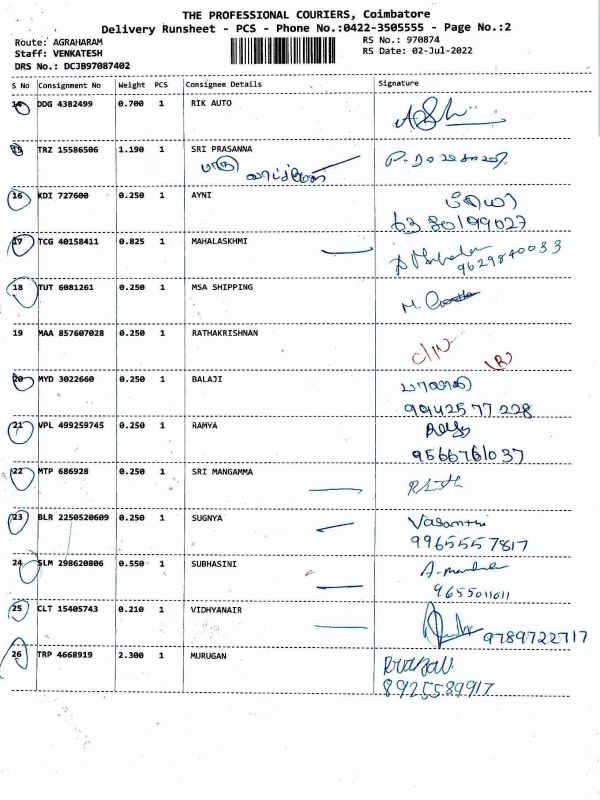 THE PROFESSIONAL COURIERS, Coimbatore
Delivery Runsheet - PCS - Phone No.:0422-3505555 - Page No.:2
Route: AGRAHARAM
RS No.: 970874
Staff: VENKATESH
RS Date: 02-Jul-2022
DRS No.: DCJB97087402
S No Consignment No Weight PCS Consignee Details Signature
14 DDG 4382499 0.700 1 RIK AUTO
15 TRZ 15586506 1.190 1 SRI PRASANNA
16 KDI 727600 0.250 1 AYNI
6380199027
17 TCG 40158411 0.825 1 MAHALASKHMI
9629840033
18 TUT 6081261 0.250 1 MSA SHIPPING
19 MAA 857607028 0.250 1 RATHAKRISHNAN
20 MYD 3022660 0.250 1 BALAJI
9942577228
21 VPL 499259745 0.250 1 RAMYA
9566761037
22 MTP 686928 0.250 1 SRI MANGAMMA
23 BLR 2250520609 0.250 1 SUGNYA Vasanthi
9965557817
24 SLM 298620806 0.550 1 SUBHASINI
9655011011
25 CLT 15405743 0.210 1 VIDHYANAIR
9789722717
26 TRP 4668919 2.300 1 MURUGAN
8925589917